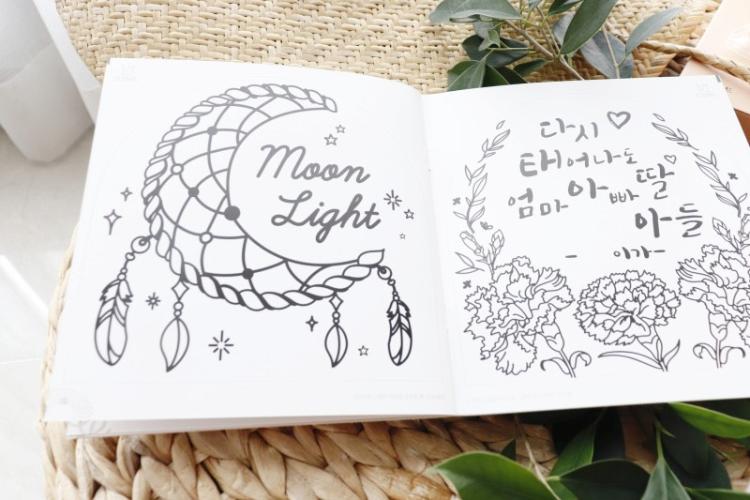 Moon
Light
다시♡
태어나도
엄마 아빠 딸
아들
- 이가-